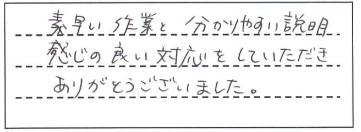 素早い作業と分かりやすい説明
感じの良い対応をしていただき
ありがとうございました。